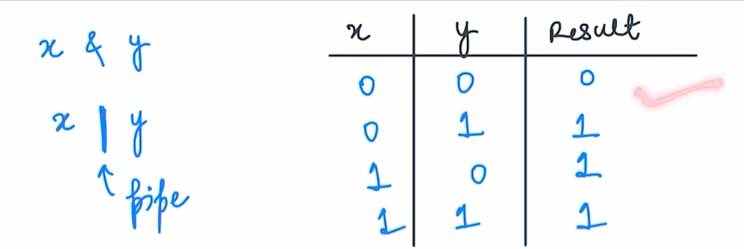 x & y
x | y
↑ pipe
x y Result
0 0 0
0 1 1
1 0 1
1 1 1